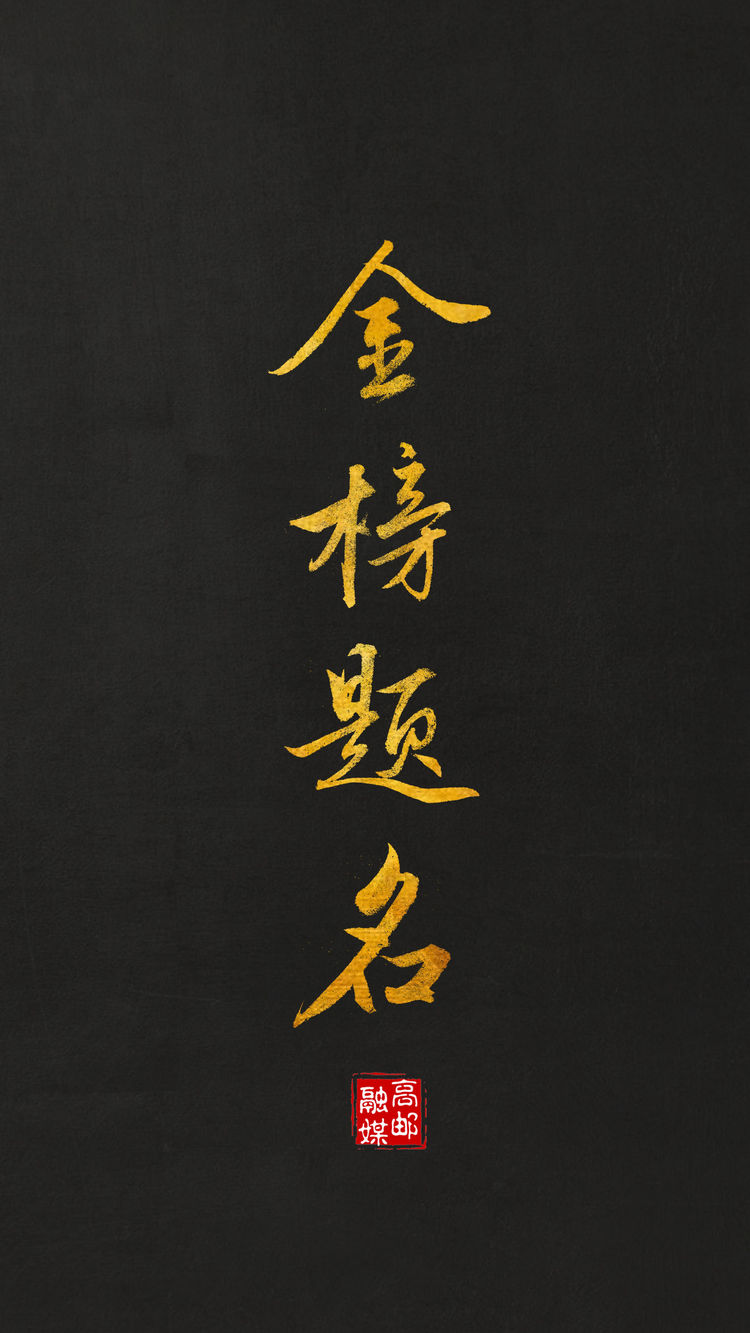 金榜题名
高邮
融媒